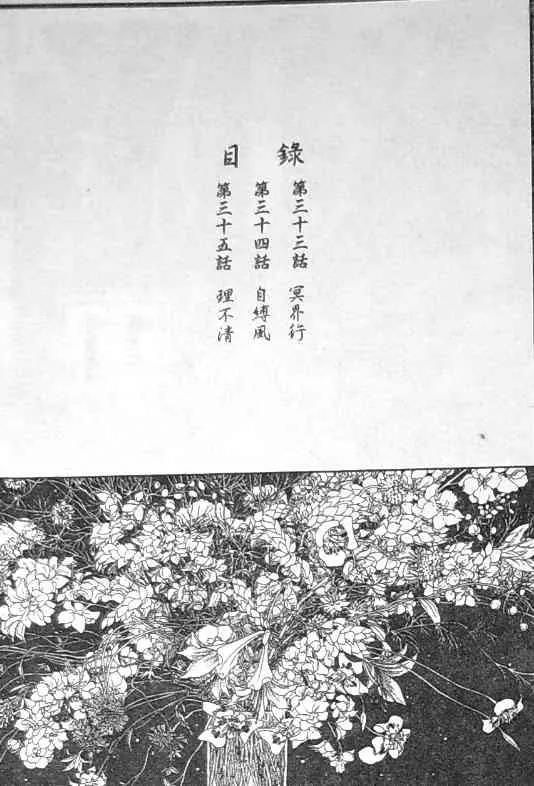 目錄
第三十三話 冥界行
第三十四話 自縛風
第三十五話 理不清